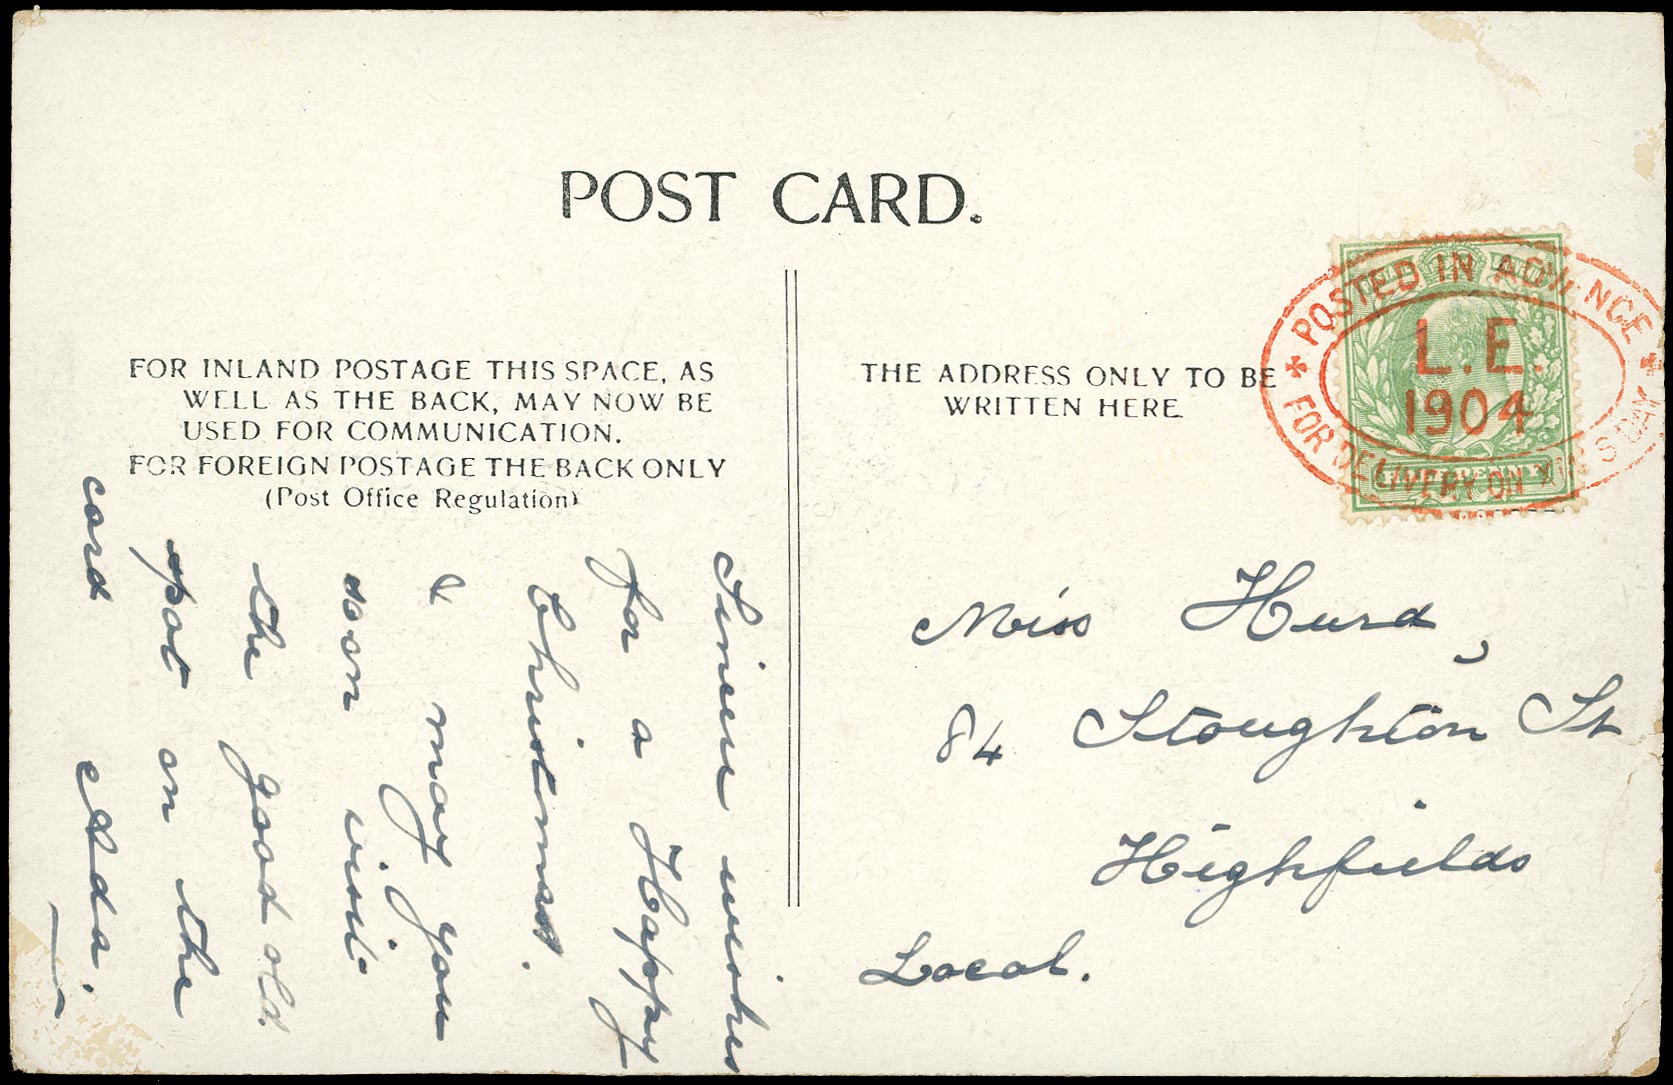 POST CARD.
FOR INLAND POSTAGE THIS SPACE, AS
WELL AS THE BACK, MAY NOW BE
USED FOR COMMUNICATION.
FOR FOREIGN POSTAGE THE BACK ONLY
(Post Office Regulation)
THE ADDRESS ONLY TO BE
WRITTEN HERE
POSTED IN ADVANCE
L.E.
1904
FOR DELIVERY ON XMAS DAY
Sincere wishes
for a Happy
Christmas.
& may you
soon visit
the good old
spot on the
card
Ada.
Miss Hurd,
84 Stoughton St
Highfields
Local.